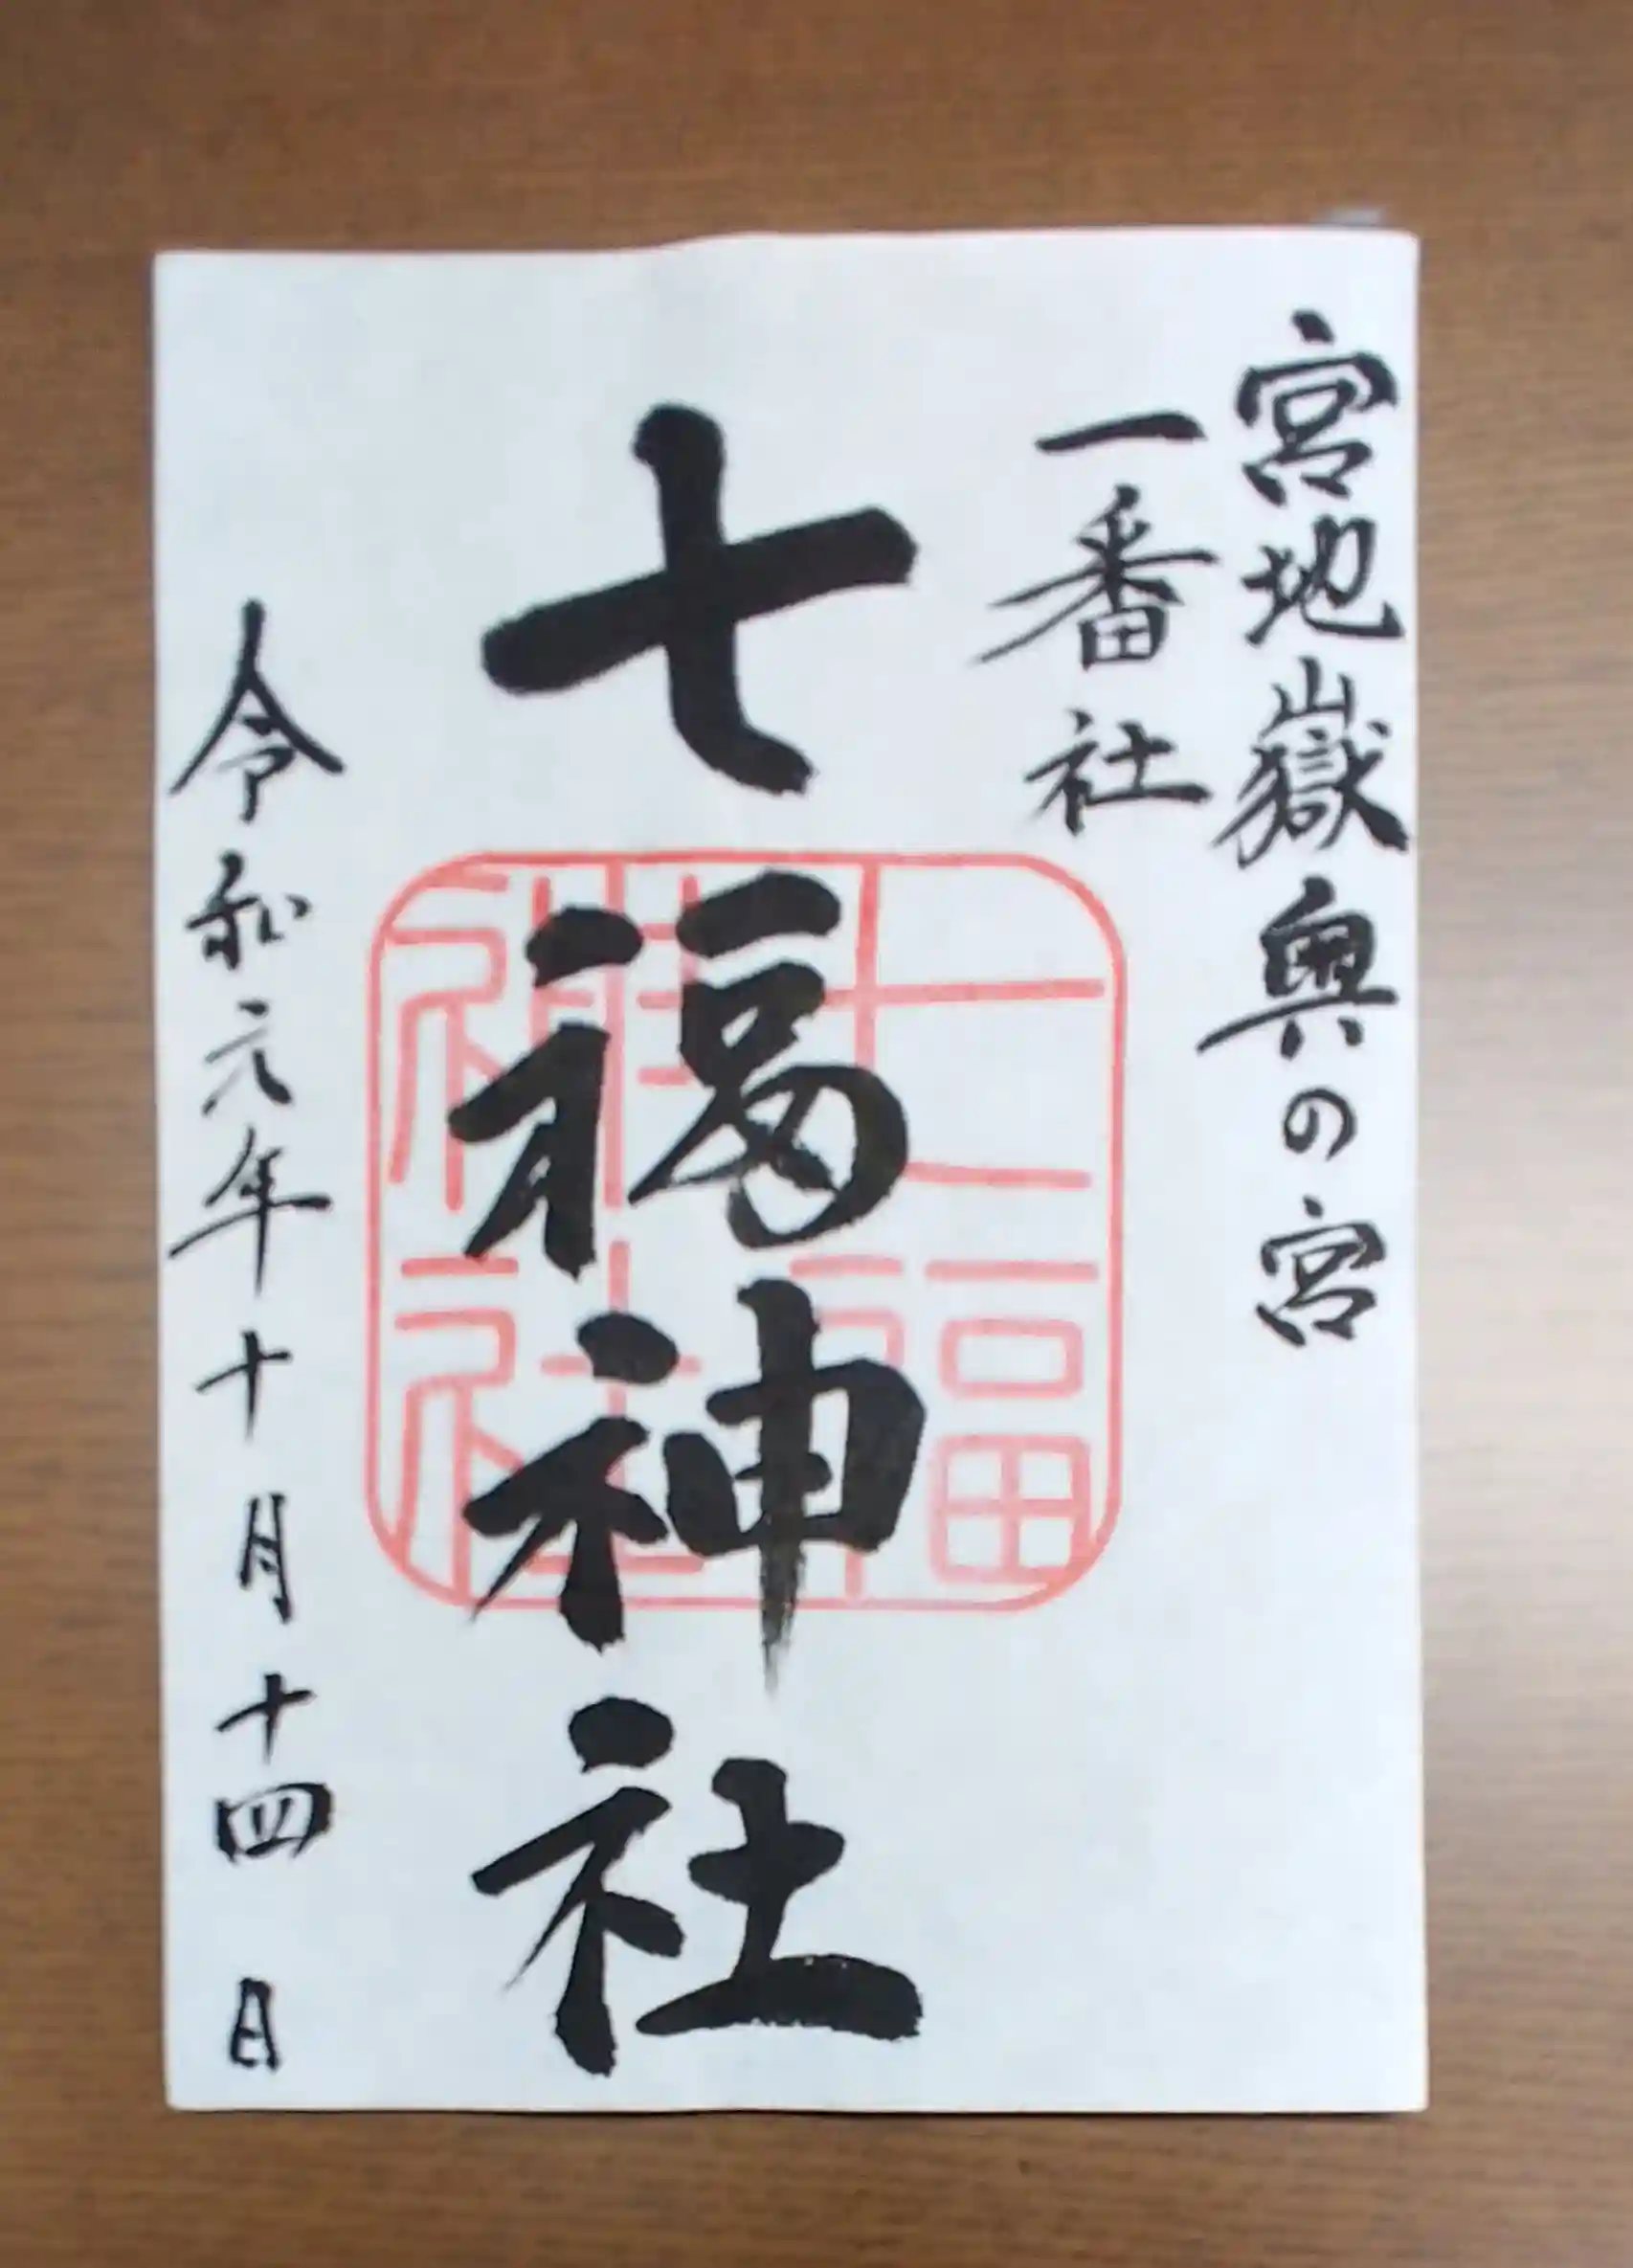 宮地嶽奥の宮
一番社
七福神社
七福
神社
令和元年十月十四日